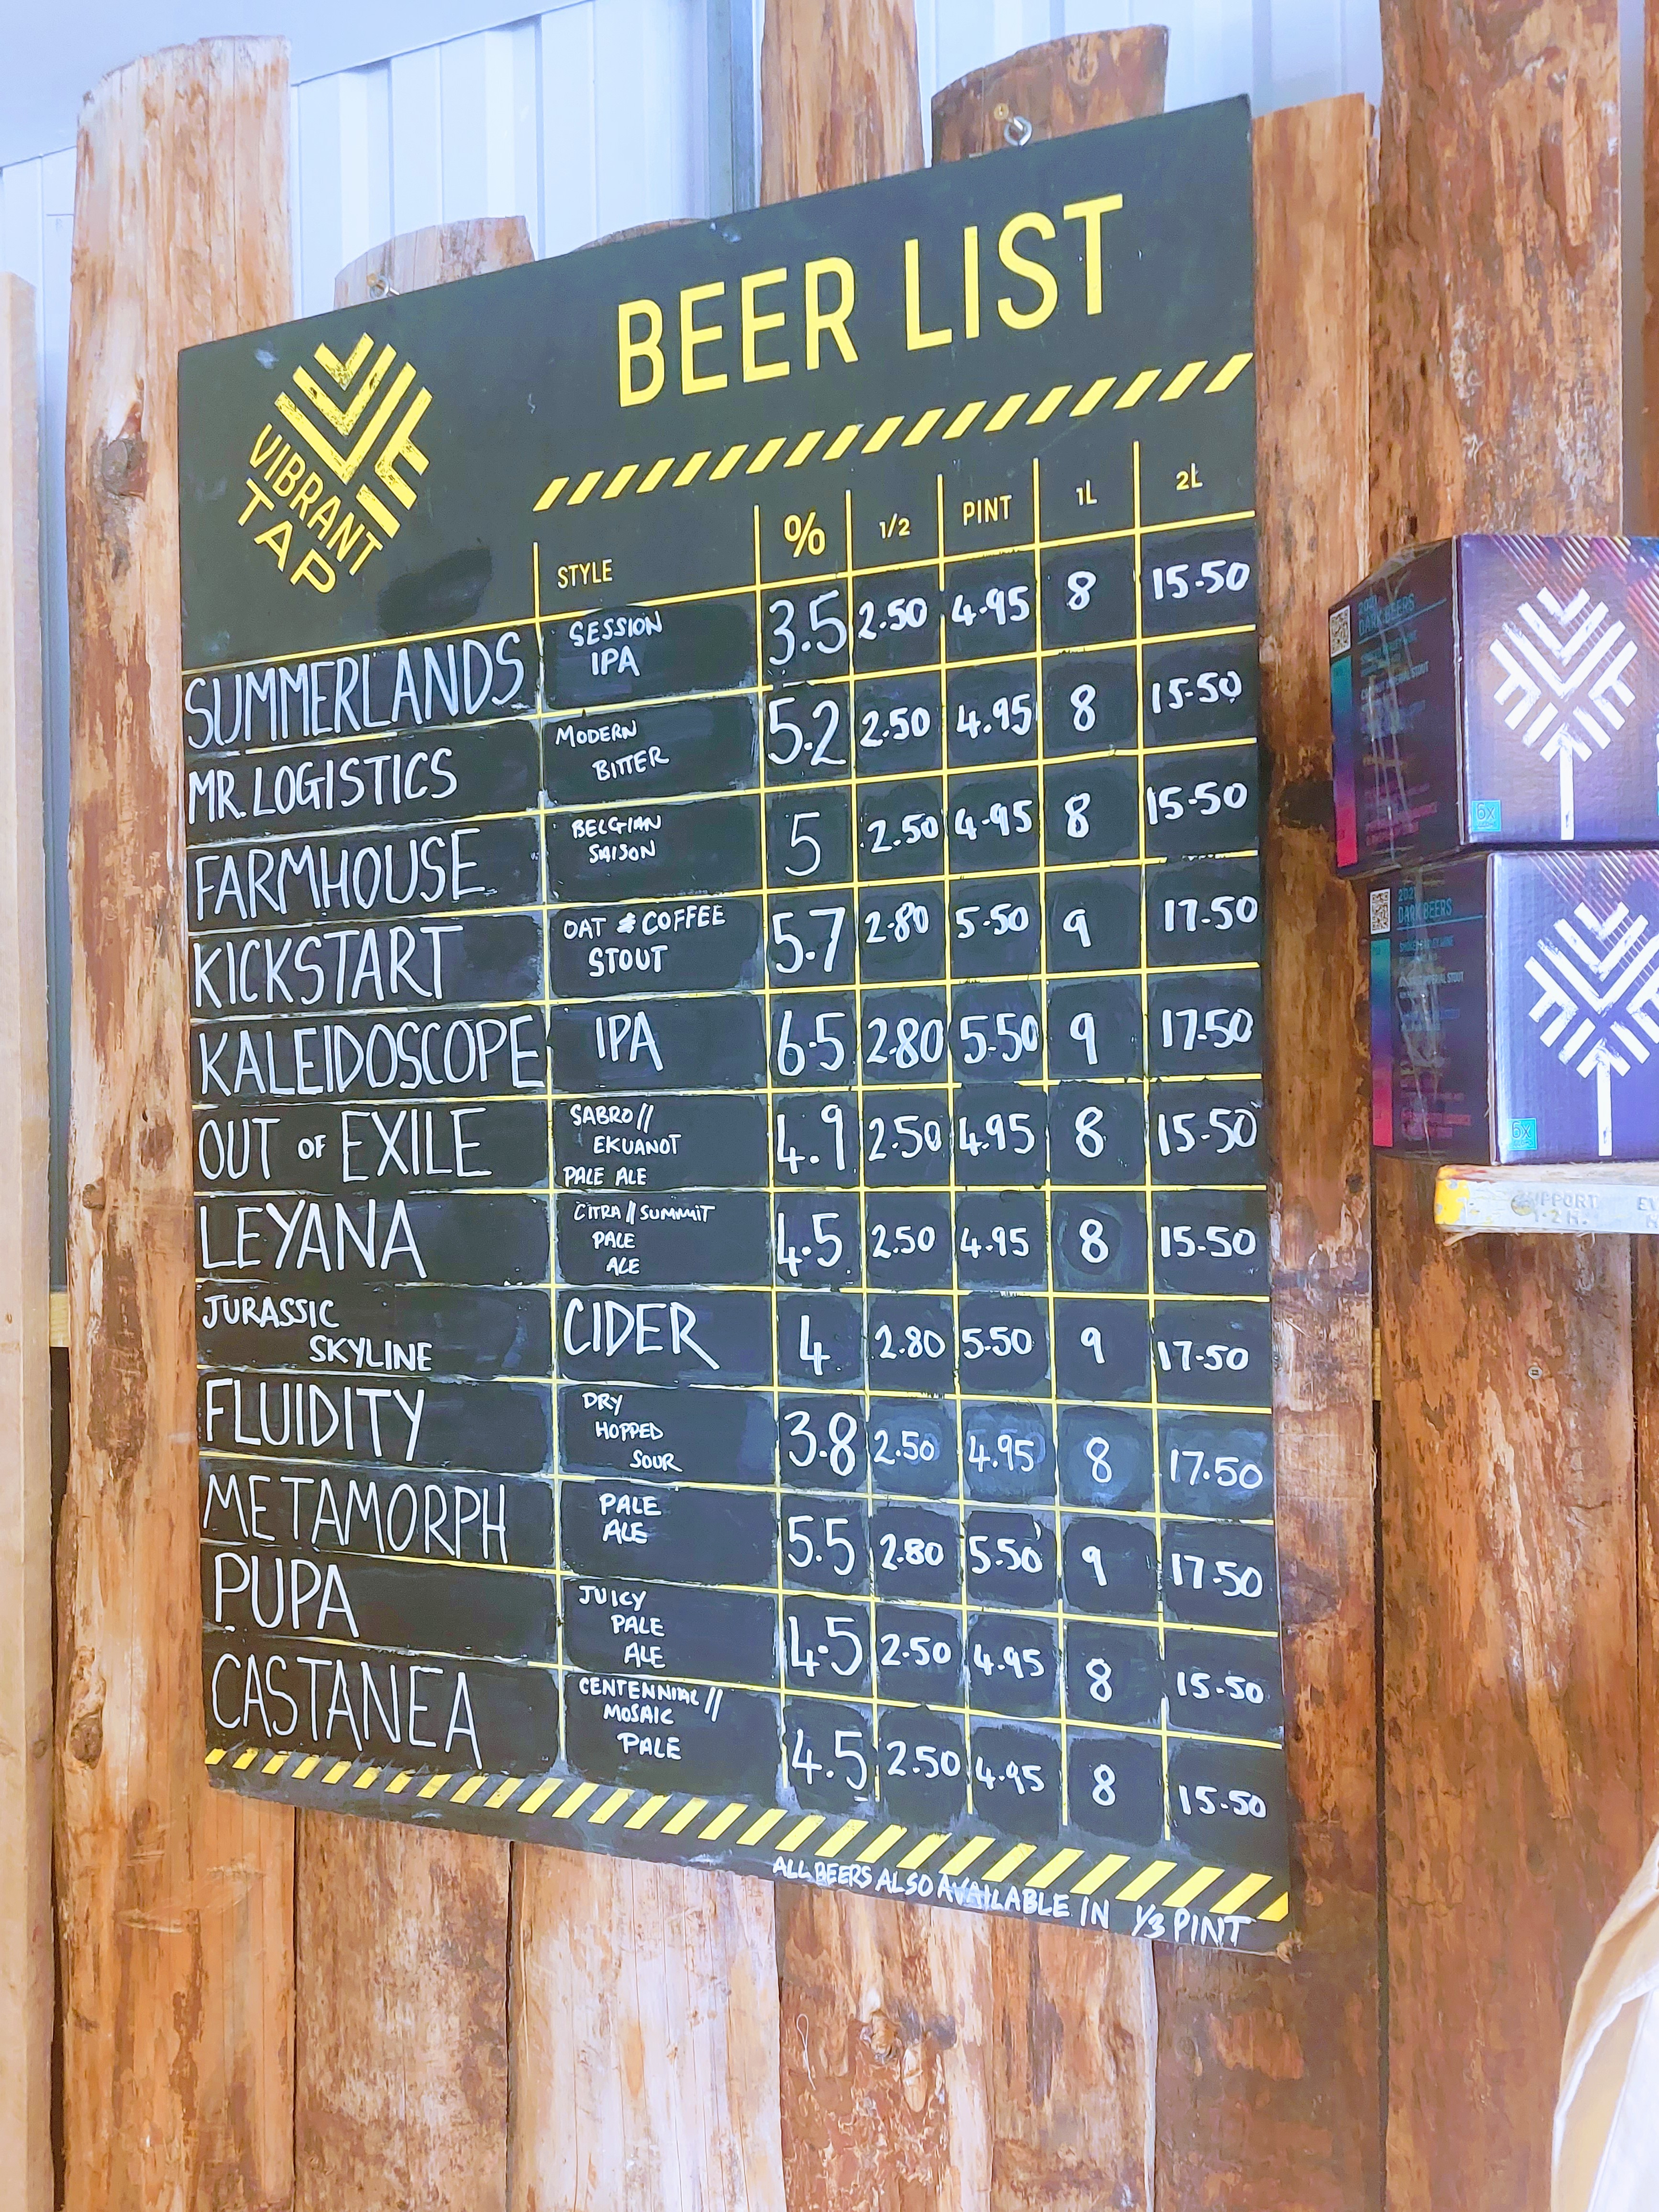 BEER LIST
VIBRANT
TAP
STYLE % 1/2 PINT 1L 2L
SUMMERLANDS SESSION IPA 3.5 2.50 4.95 8 15-50
MR. LOGISTICS MODERN BITTER 5.2 2.50 4.95 8 15-50
FARMHOUSE BELGIAN SAISON 5 2.50 4.95 8 15-50
KICKSTART OAT & COFFEE STOUT 5.7 2.80 5.50 9 17.50
KALEIDOSCOPE IPA 6.5 2.80 5.50 9 17.50
OUT OF EXILE SABRO// EKUANOT PALE ALE 4.9 2.50 4.95 8 15-50
LEYANA CITRA // SUMMIT PALE ALE 4.5 2.50 4.95 8 15.50
JURASSIC SKYLINE CIDER 4 2.80 5.50 9 17.50
FLUIDITY DRY HOPPED SOUR 3.8 2.50 4.95 8 17.50
METAMORPH PALE ALE 5.5 2.80 5.50 9 17.50
PUPA JUICY PALE ALE 4.5 2.50 4.95 8 15.50
CASTANEA CENTENNIAL // MOSAIC PALE 4.5 2.50 4.95 8 15.50
ALL BEERS ALSO AVAILABLE IN 1/3 PINT
2021
DARK BEERS
6x
2021
DARK BEERS
6x